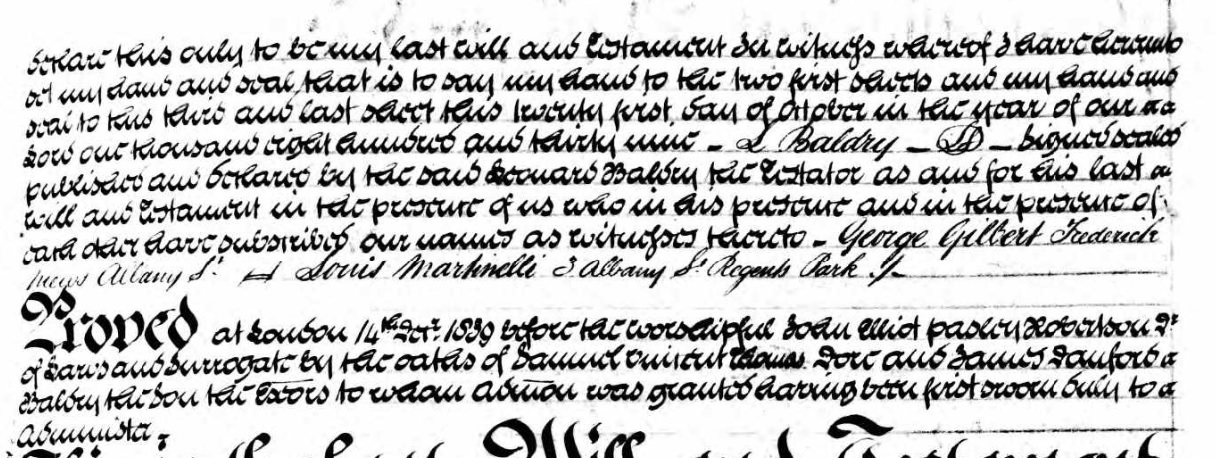 declare this only to be my last will and Testament In witness whereof I have hereunto
set my hand and seal, that is to say my hand to the two first sheets and my hand and
seal to this third and last sheet this twenty first day of October in the year of our
Lord one thousand eight hundred and thirty nine – L Baldry – LS – Signed sealed
published and declared by the said Leonard Baldry the Testator as and for his last
will and Testament in the presence of us who in his presence and in the presence of
each other have subscribed our names as witnesses thereto – George Gilbert Frederick
Mews Albany St. – Louis Martinelli 3 Albany St Regents Park
Proved at London 14th 1839 before the worshipful John Elliot Pasley Robertson Dr
of Laws and Surrogate by the oaths of Samuel Vincent Dore and James Danford
Baldry the Son the Exors to whom Admon was granted having been first sworn duly to
Administer.
Will and Testament